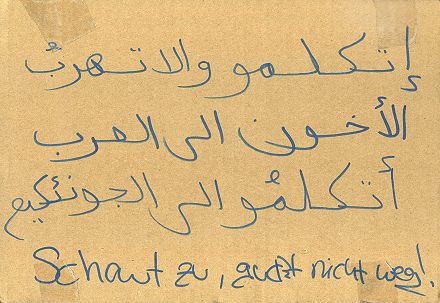 إتكلمو والا تهربُ
الأخون الى العرب
أتكلمُو الى الجونئكيم
Schaut zu, guckt nicht weg!